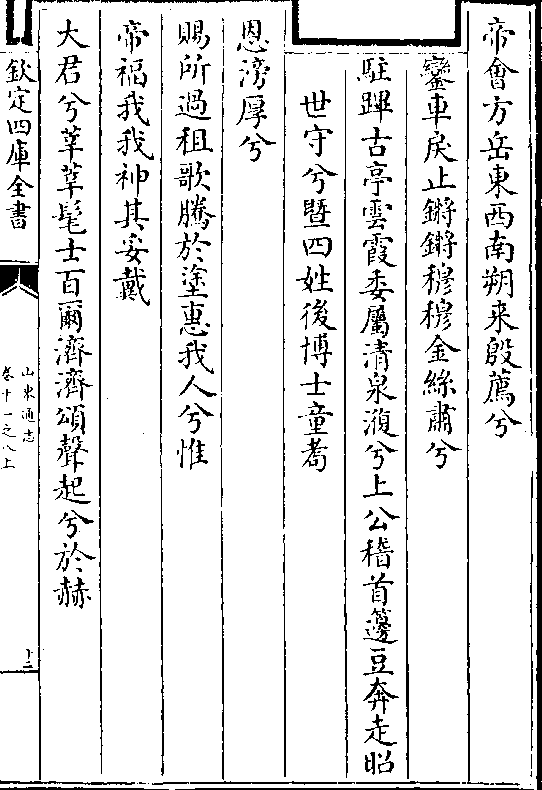 帝會方岳東西南朔来殷薦兮
鑾車戾止鏘鏘穆穆金絲肅兮
駐蹕古亭雲霞委屬清泉澒兮上公稽首籩豆奔走昭
世守兮暨四姓後博士童耉
恩滂厚兮
賜所過租歌騰於塗惠我人兮惟
帝福我我神其妥戴
大君兮莘莘髦士百爾濟濟頌聲起兮於赫
欽定四庫全書
山東通志
卷十一之八上
十二